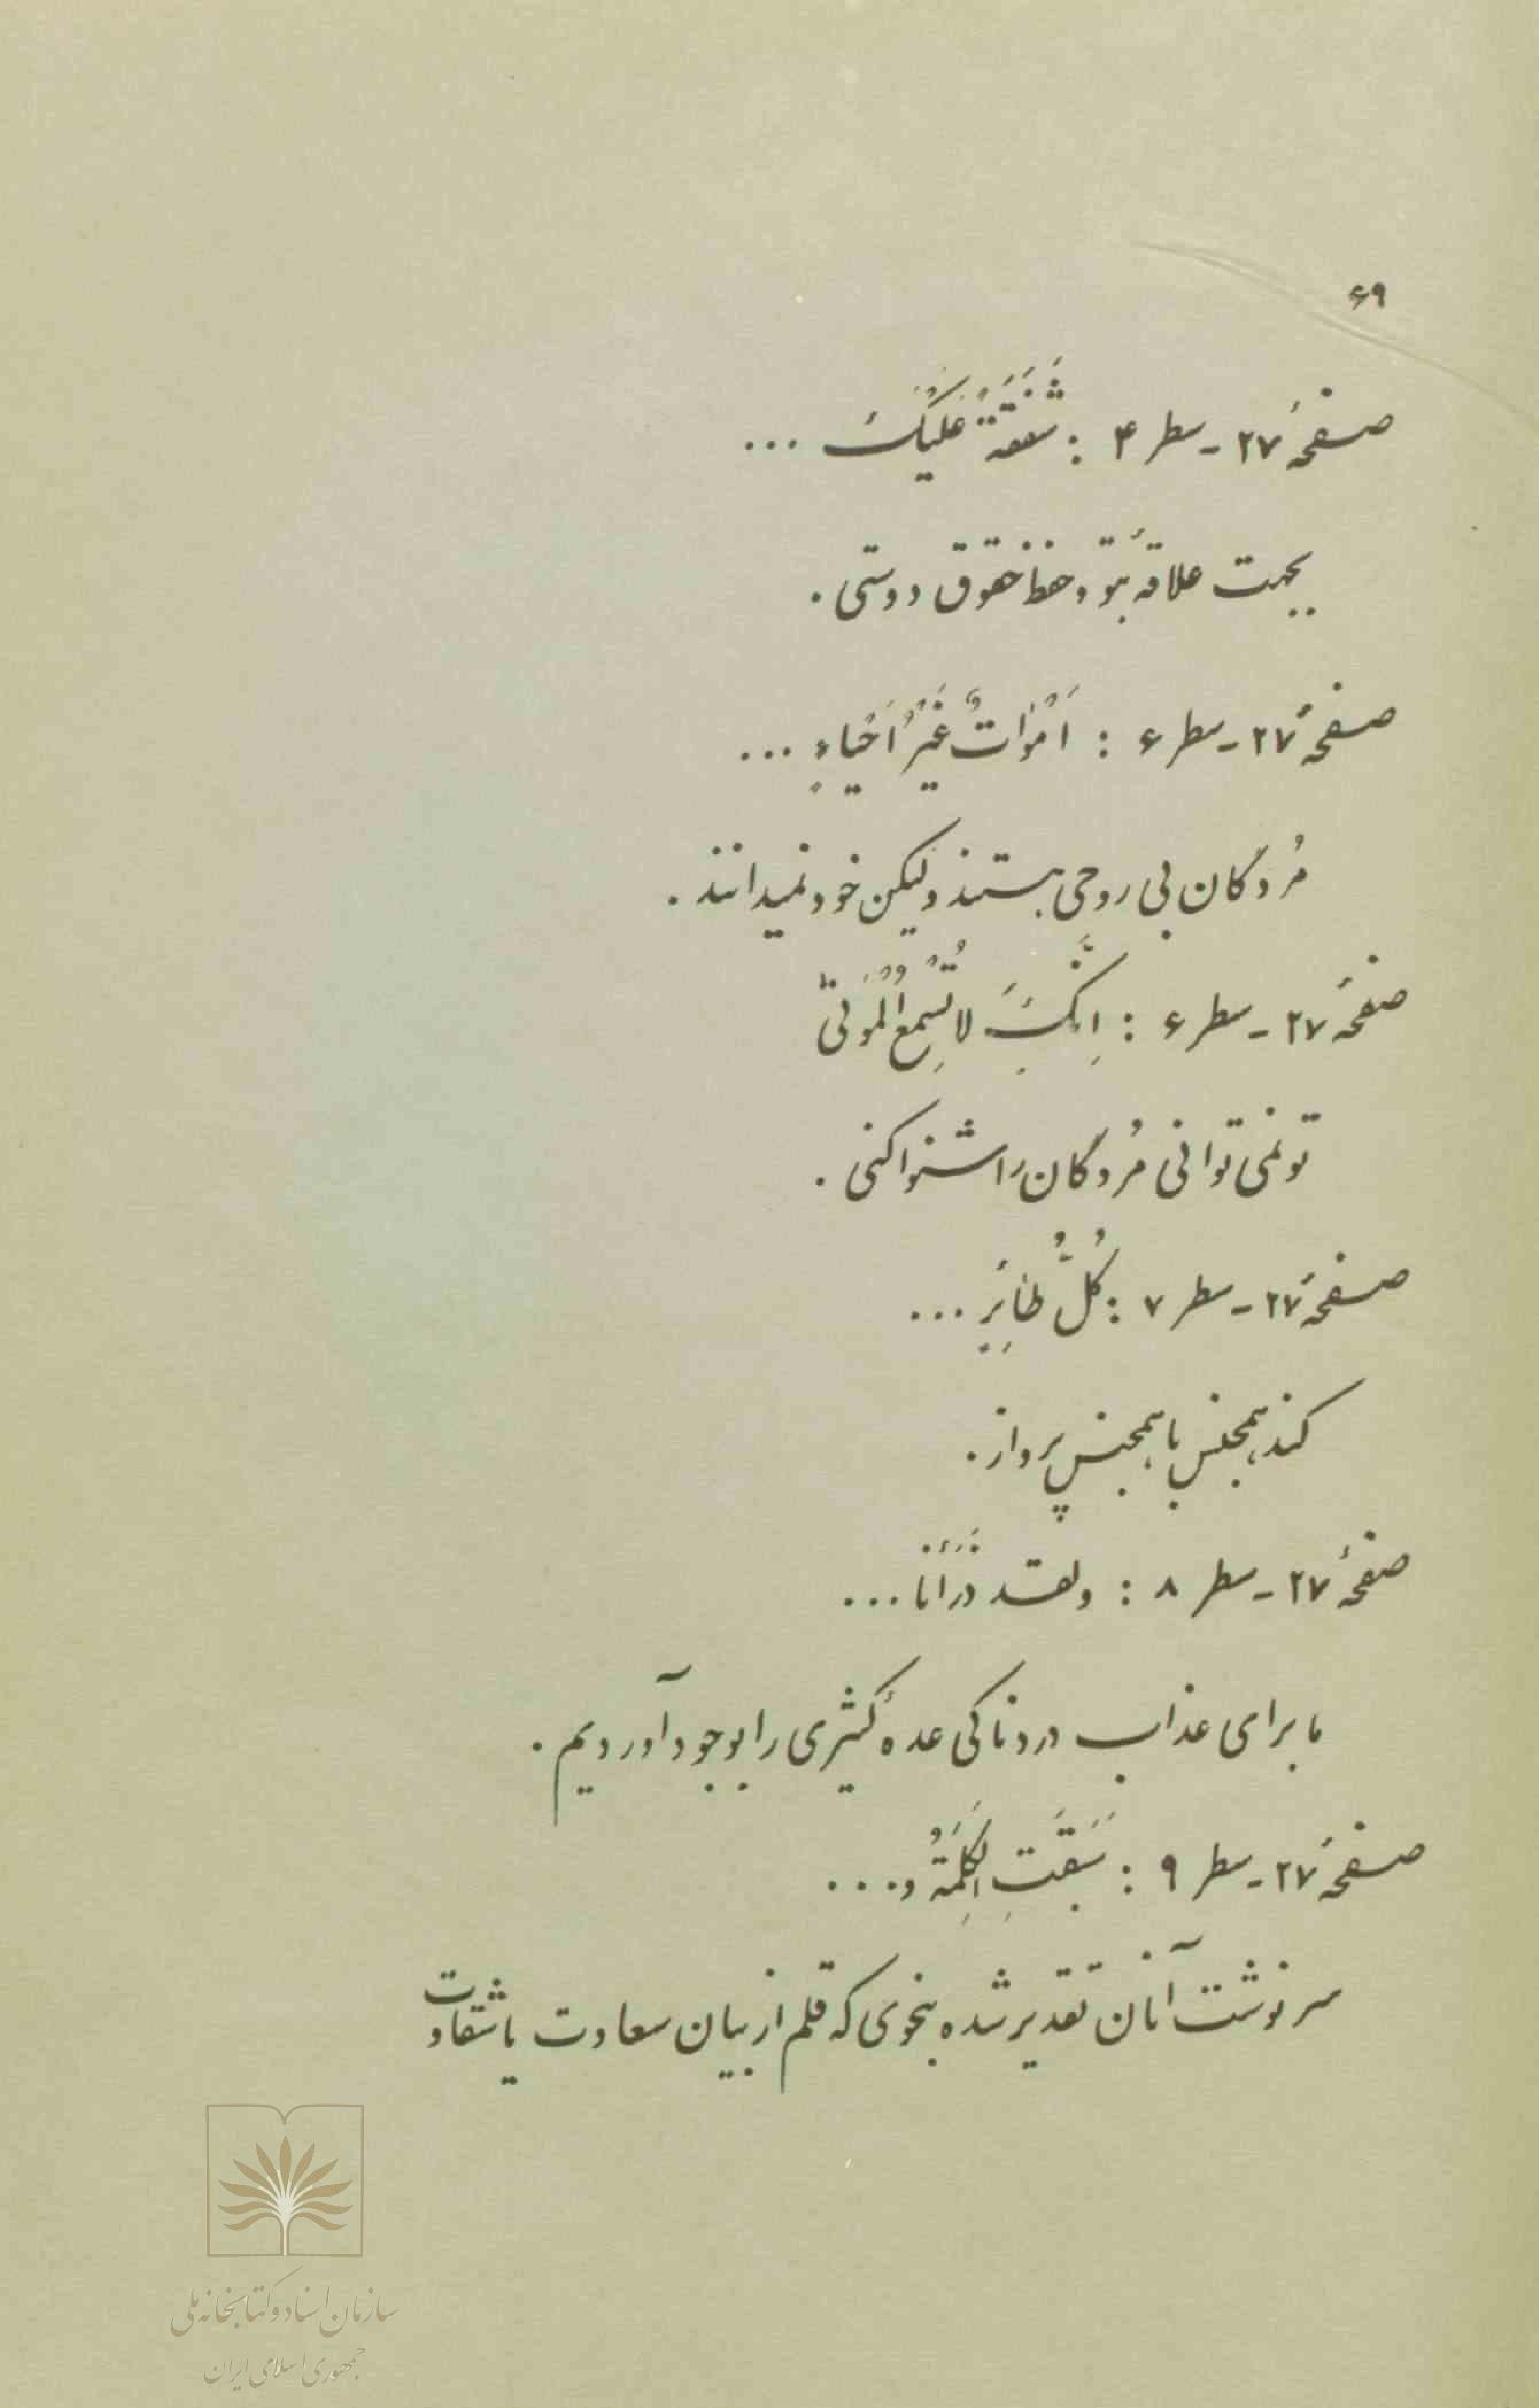 ۶۹
صفحهٔ ۲۷ - سطر ۴ : شَفَقَةً عَلَیْكَ ...
بجهت علاقهٔ بتو و حفظ حقوق دوستی .
صفحهٔ ۲۷ - سطر ۶ : اَمْوٰاتٌ غَیْرُ اَحْیٰاءٍ ...
مُردگان بی روحی هستند ولیکن خود نمیدانند .
صفحهٔ ۲۷ - سطر ۶ : اِنَّكَ لا تُسْمِعُ الْمَوْتیٰ
تو نمی توانی مُردگان را شنوا کنی .
صفحهٔ ۲۷ - سطر ۷ : کُلُّ طٰائِرٍ ...
کند همجنس با همجنس پرواز .
صفحهٔ ۲۷ - سطر ۸ : ولقد ذَرَأْنٰا ...
ما برای عذاب دردناکی عدهٔ کثیری را بوجود آوردیم .
صفحهٔ ۲۷ - سطر ۹ : سَبَقَتِ الْکَلِمَةُ و ...
سرنوشت آنان تقدیر شده بنحوی که قلم از بیان سعادت یا شقاوت
سازمان اسناد و کتابخانه ملی
جمهوری اسلامی ایران